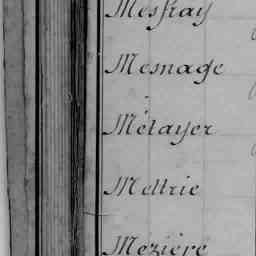 Mesfray
Mesnage
Métayer
Mettrie
Mezière